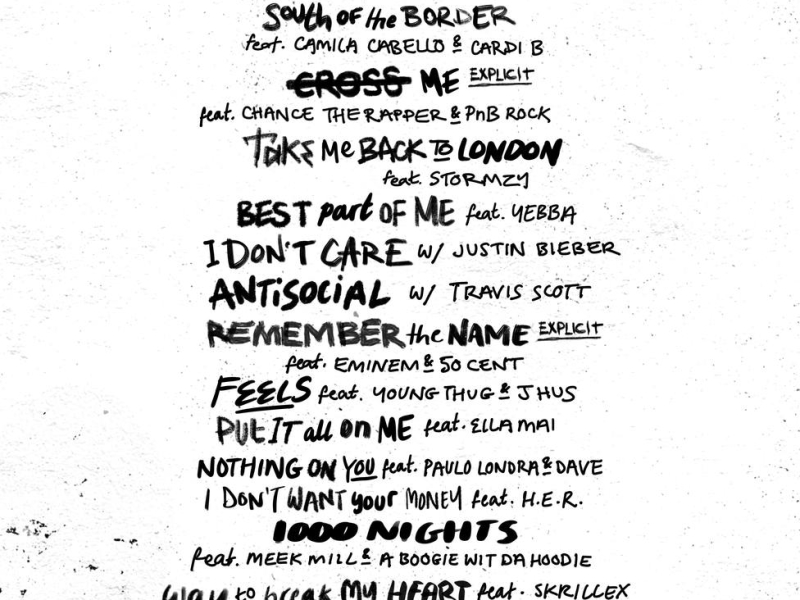 South OF the BORDER
feat. CAMILA CABELLO & CARDI B
CROSS ME EXPLICIT
feat. CHANCE THE RAPPER & PnB ROCK
Take Me BACK TO LONDON
feat. STORMZY
BEST part OF ME feat. YEBBA
I DON'T CARE w/ JUSTIN BIEBER
ANTiSOCiAL w/ TRAVIS SCOTT
REMEMBER the NAME EXPLICIT
feat. EMINEM & 50 CENT
FEELS feat. YOUNG THUG & J HUS
PUt IT all on ME feat. ELLA MAI
NOTHING ON YOU feat. PAULO LONDRA & DAVE
I DON'T WANT your MONEY feat. H.E.R.
1000 NIGHTS
feat. MEEK MILL & A BOOGIE WIT DA HOODIE
way to break MY HEART feat. SKRILLEX